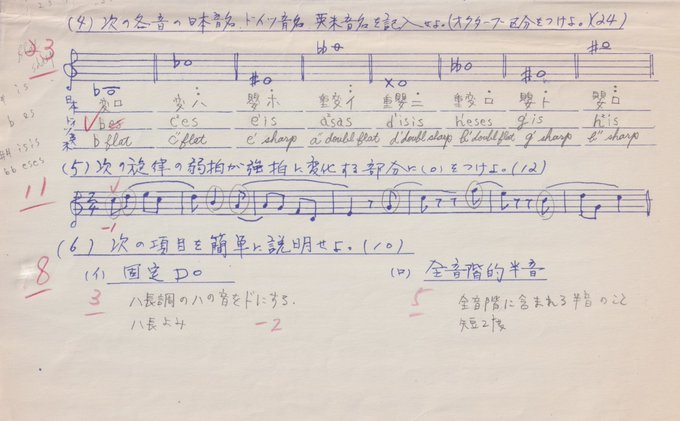 (4) 次の各音の日本音名、ドイツ音名 英米音名を記入せよ。(オクターブ区分をつけよ。)(24)
23
日本 変ロ 変ハ 嬰ホ 重変イ 重嬰ニ 重変ロ 嬰ト 嬰ロ
ドイツ b es c"es e'is a"sas d'isis h'eses g'is h"is
英米 b flat c" flat e' sharp a" doubl flat d' doubl sharp b' doubl flat g' sharp b" sharp
is
b es
isis
bb eses
(5) 次の旋律の弱拍が強拍に変化する部分に(○)をつけよ。(12)
11
-1
(6) 次の項目を簡単に説明せよ。(10)
8
(イ) 固定 Do (ロ) 全音階的半音
3 ハ長調のハの音をドにする。 5 全音階に含まれる半音のこと
ハ長よみ -2 短2度